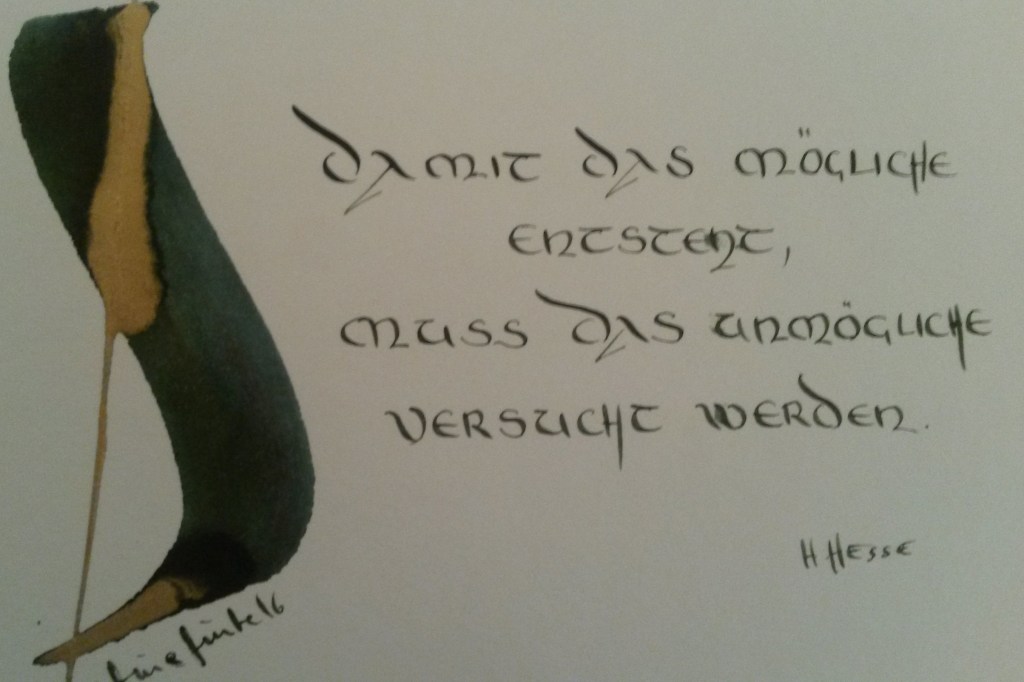 Damit das Mögliche
entsteht,
muss das Unmögliche
versucht werden.
H Hesse